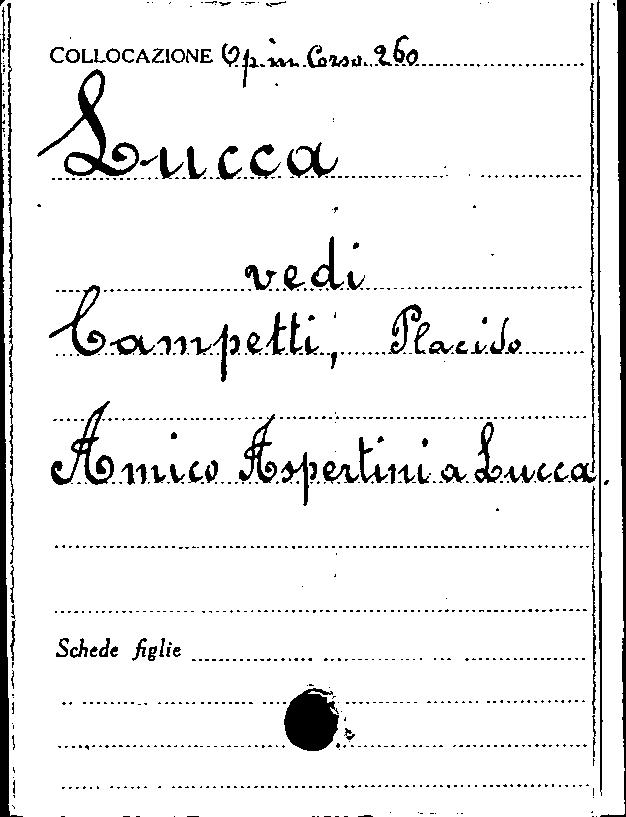 COLLOCAZIONE Op. in Corso 260
Lucca
vedi
Campetti, Placido
Amico Aspertini a Lucca.
Schede figlie